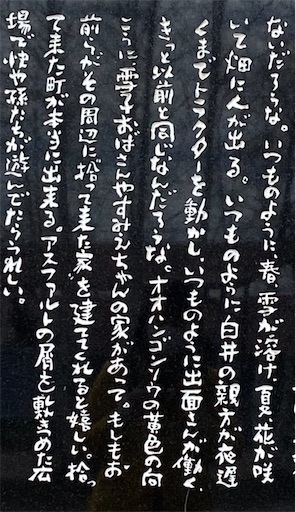 ないだろうな。いつものように春、雪が溶け、夏、花が咲
いて畑に人が出る。いつものように臼井の親方が夜遅
くまでトラクターを動かし、いつものように出面さんが働く、
きっと以前と同じなんだろうな。オオハンゴンソウの黄色の向
こうに雪子おばさんやすみえちゃんの家があって。もしもお
前らがその周辺に拾って来た家を建ててくれると嬉しい。拾っ
て来た町が本当に出来る。アスファルトの屑を敷きつめた広
場で快や孫たちが遊んでたらうれしい。